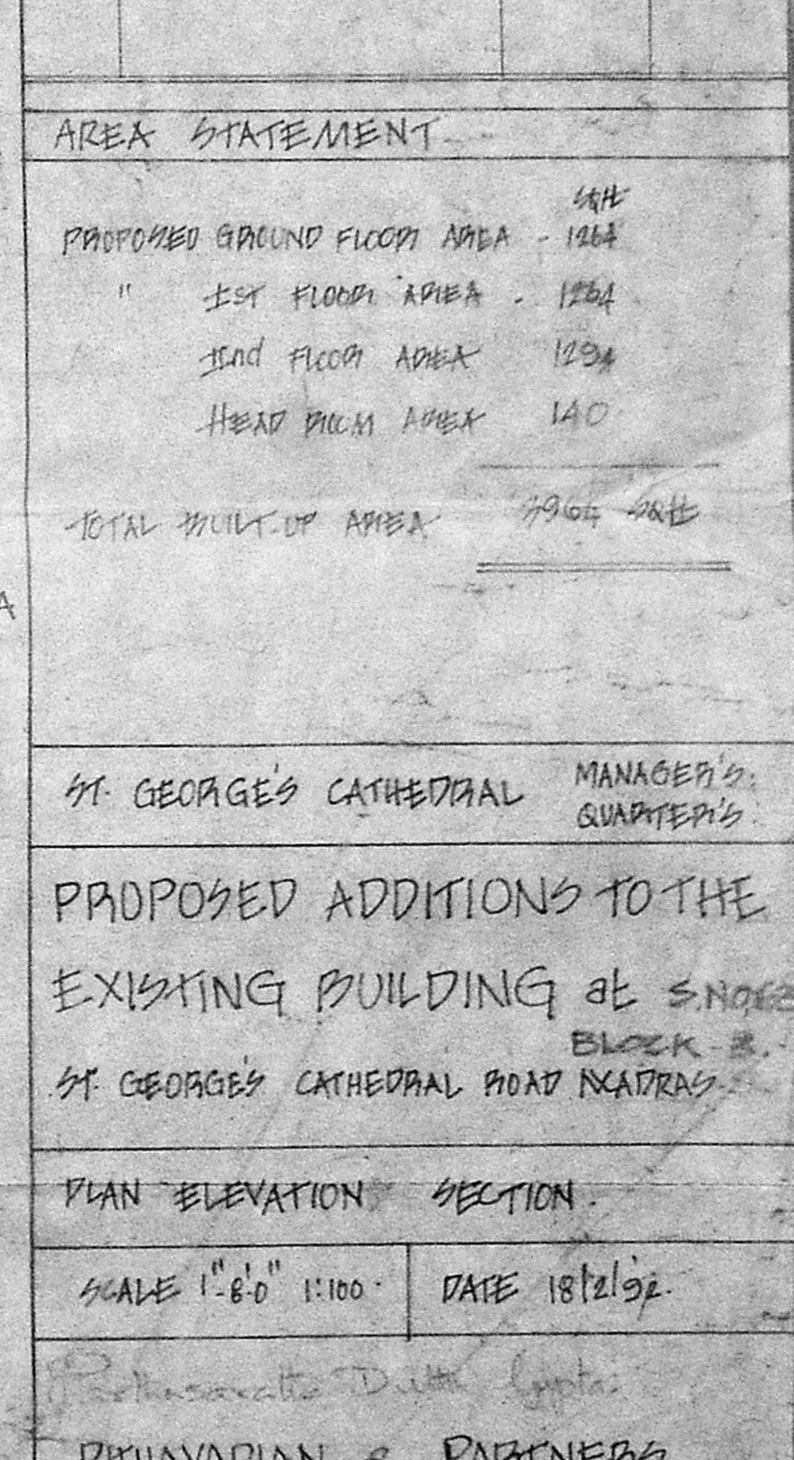 AREA STATEMENT
SQft
PROPOSED GROUND FLOOR AREA - 1264
" Ist FLOOR AREA - 1264
IInd FLOOR AREA 1294
HEAD ROOM AREA 140
TOTAL BUILT-UP AREA 3964 SQft
ST. GEORGE'S CATHEDRAL MANAGER'S
QUARTER'S
PROPOSED ADDITIONS TO THE
EXISTING BUILDING at S.NO.
BLOCK - 3.
ST. GEORGE'S CATHEDRAL ROAD MADRAS
PLAN ELEVATION SECTION.
SCALE 1"-8'-0" 1:100 DATE 18/2/92.
Dutta Gupta
& PARTNERS